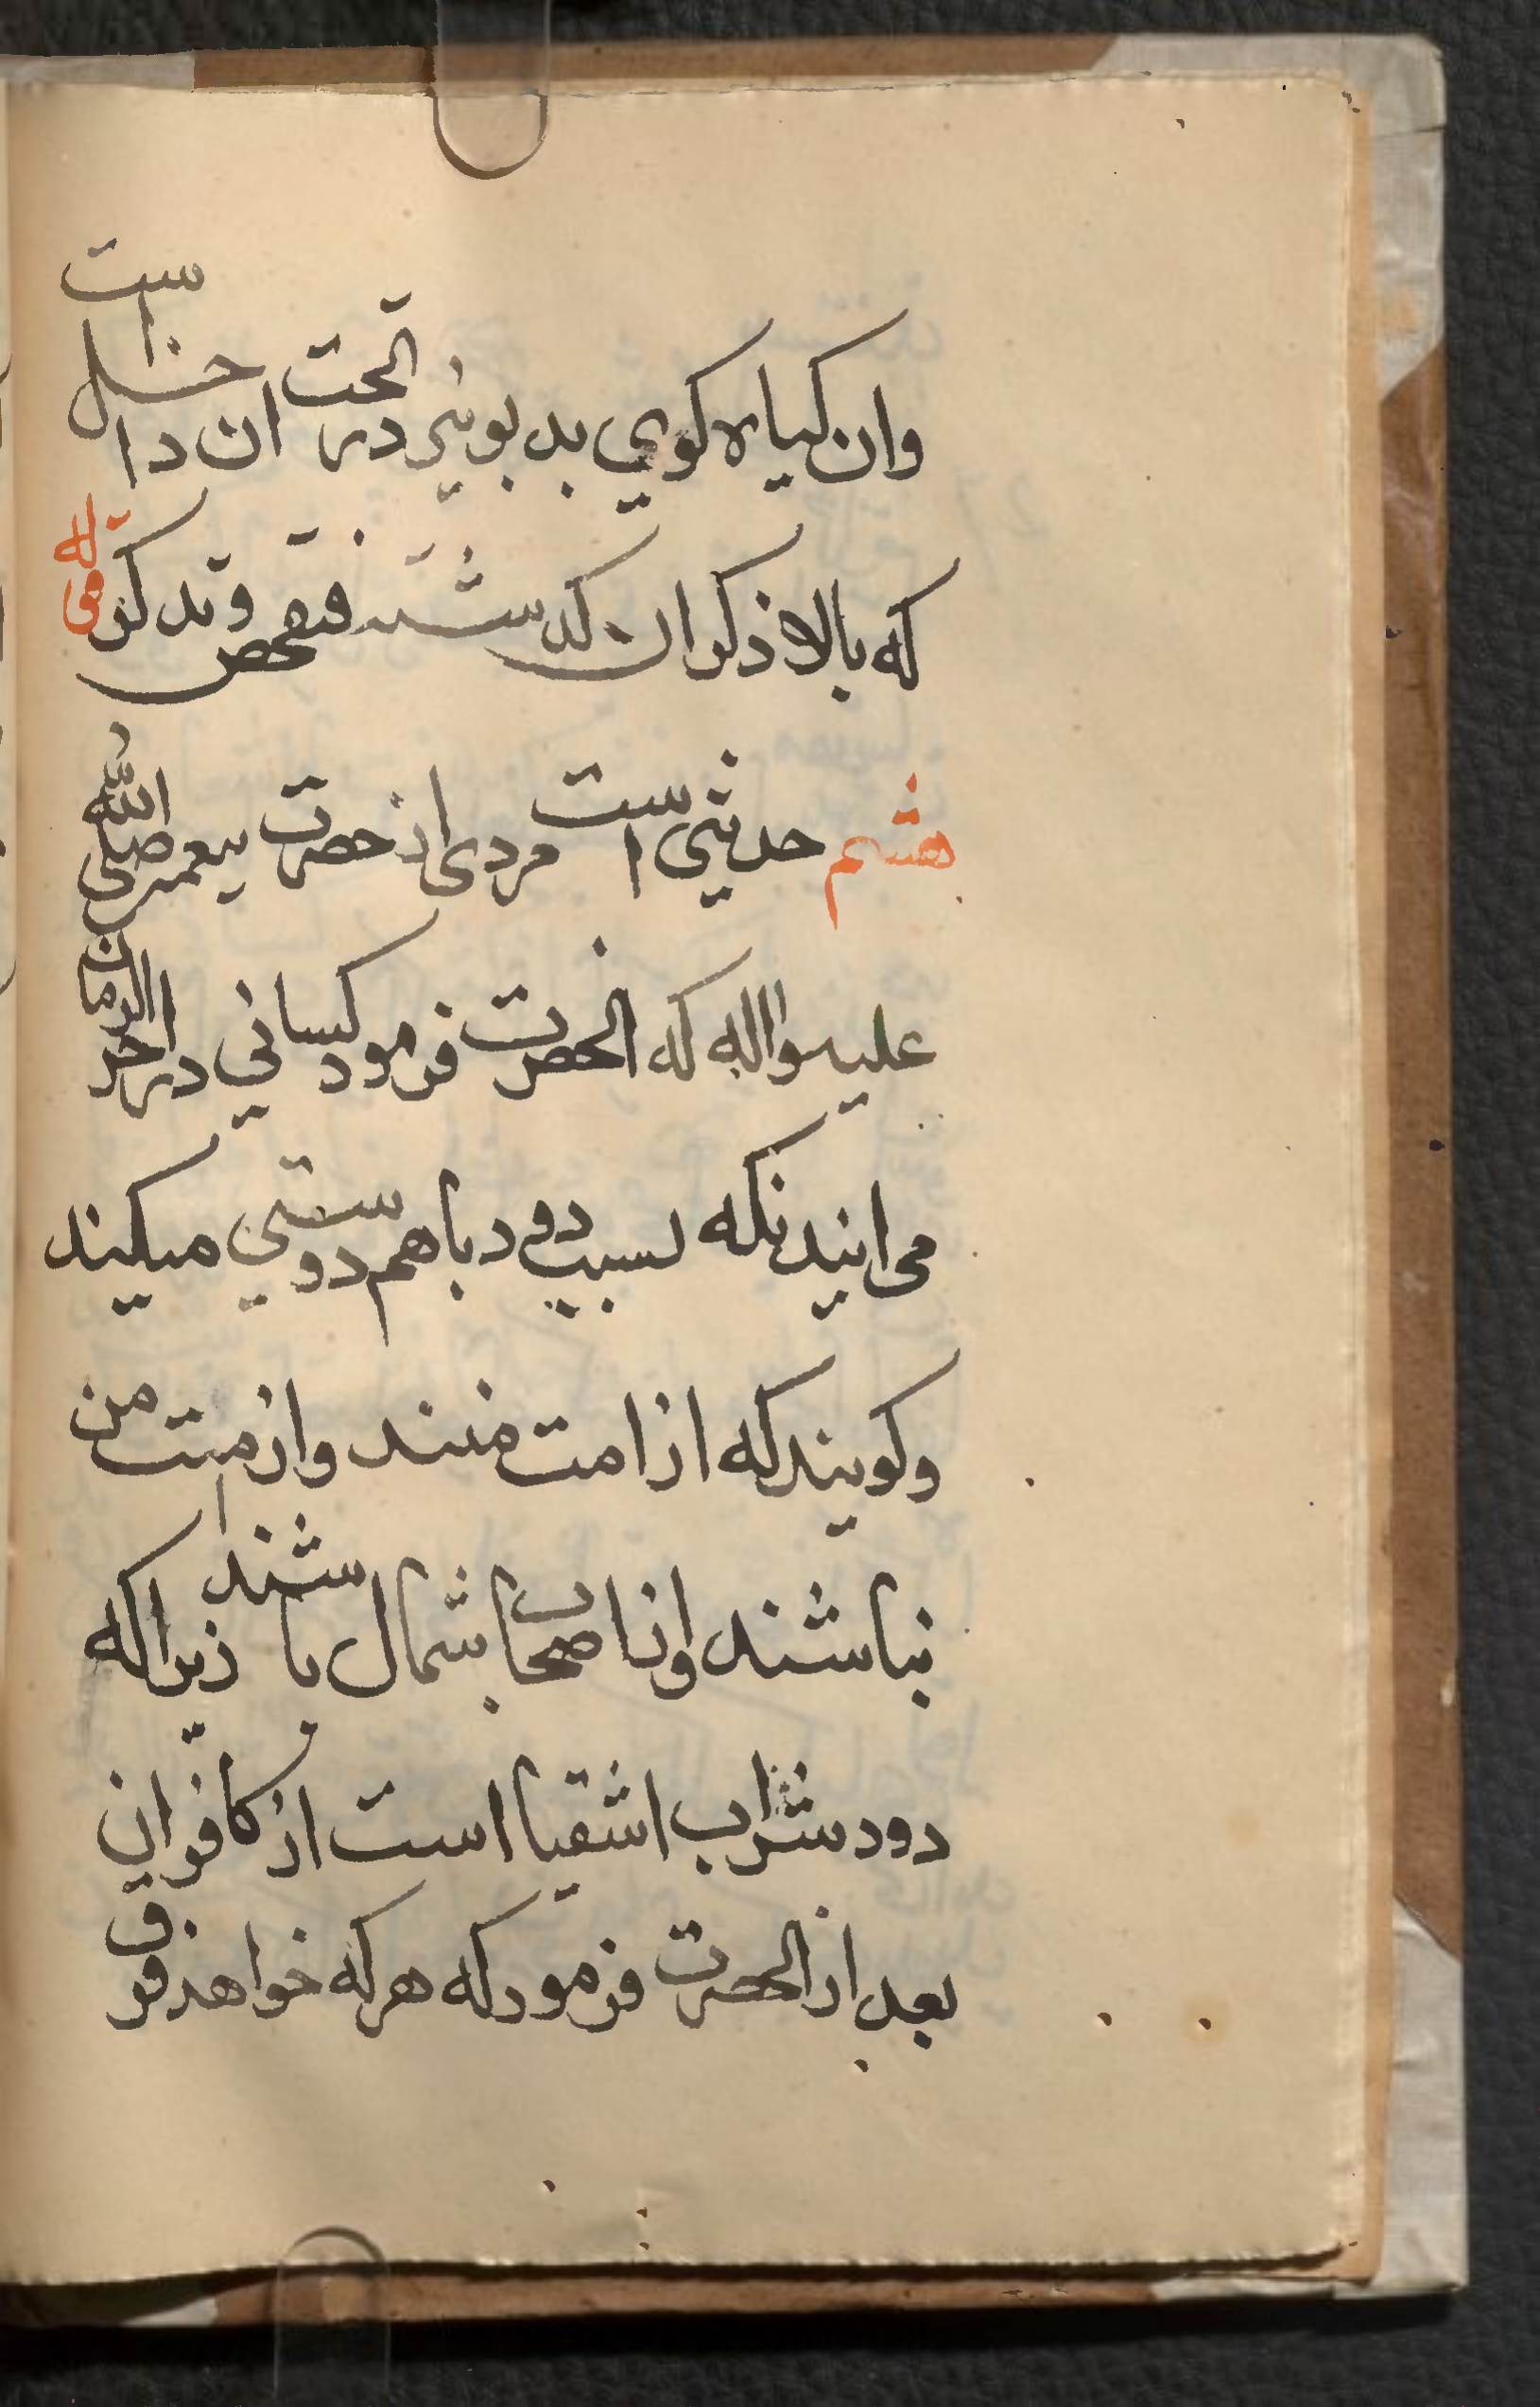 وان کیاه کوی بد بو نیز در تحت ان داخل است
که بالا ذکر ان کذشت فتفحص وتدکر
هشم حدیثی است مردی از حضرت پیغمبر صلی الله
علیه واله که انحضرت فرمود کسانی در اخر الزمان
می ایند نکه بسبب دود با هم دوستی میکند
وکویند که از امت منند واز امت من
نباشند وانا صحاب شمال باشند زیرا که
دود شراب اشقیا است از کافران
بعد از انحضرت فرمود که هر که خواهد فرق